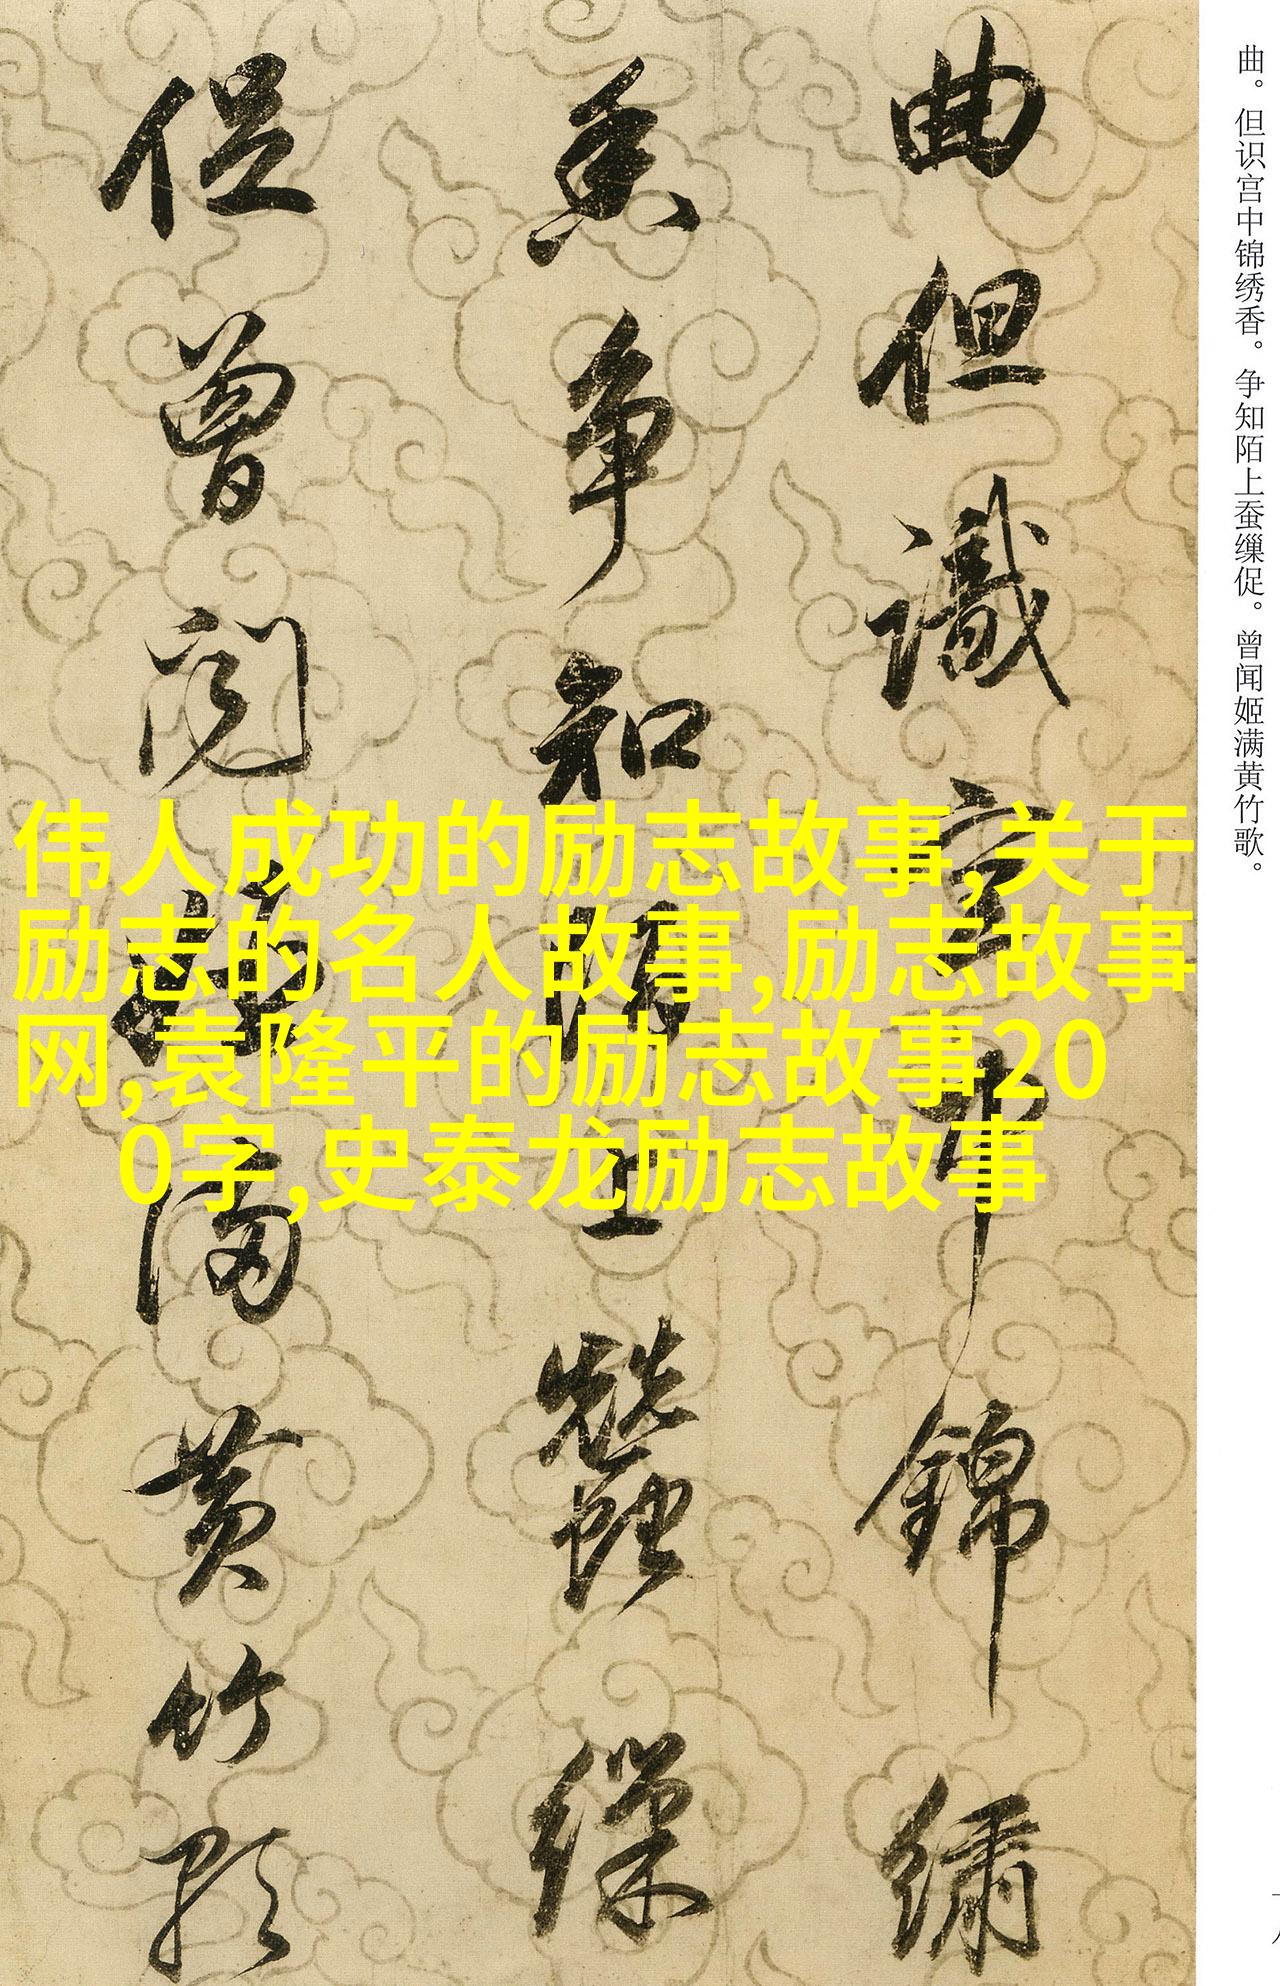 曲。但识宫中锦绣香。争知陌上蚕缫促。曾闻姬满黄竹歌。
曲但識宮中錦繡
香争知陌上蠶缫
促曾闻姬满黄竹歌
伟人成功的励志故事,关于
励志的名人故事,励志故事
网,袁隆平的励志故事20
0字,史泰龙励志故事